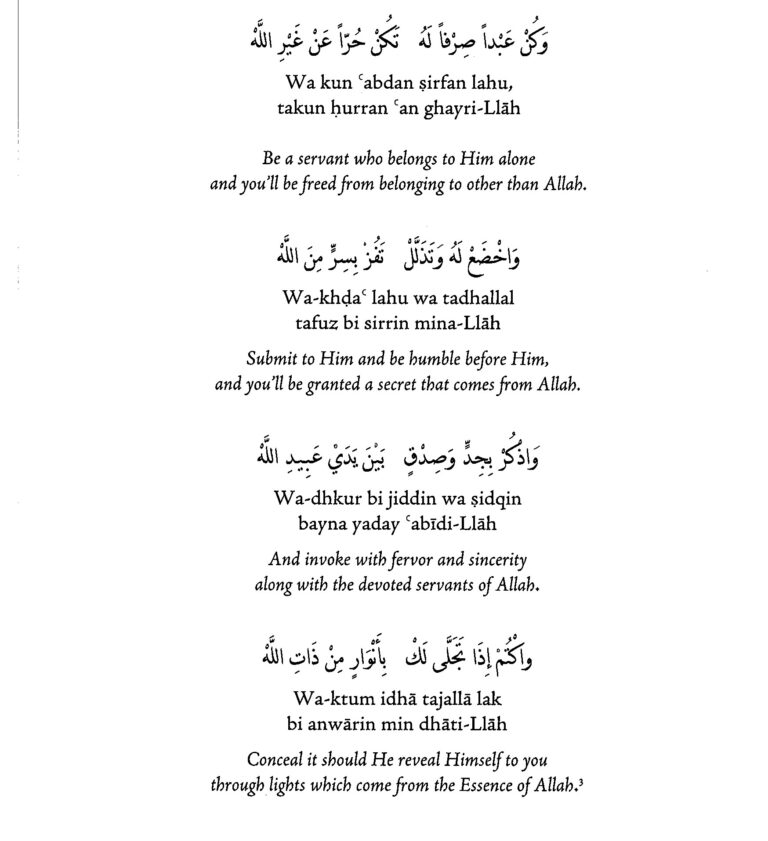 وَكُنْ عَبْداً صِرْفاً لَهُ تَكُنْ حُرّاً عَنْ غَيْرِ اللَّهْ
Wa kun ʿabdan ṣirfan lahu,
takun ḥurran ʿan ghayri-Llāh
Be a servant who belongs to Him alone
and you'll be freed from belonging to other than Allah.
وَاخْضَعْ لَهُ وَتَذَلَّلْ تَفُزْ بِسِرٍّ مِنَ اللَّهْ
Wa-khḍaʿ lahu wa tadhallal
tafuz bi sirrin mina-Llāh
Submit to Him and be humble before Him,
and you'll be granted a secret that comes from Allah.
وَاذْكُرْ بِجِدٍّ وَصِدْقٍ بَيْنَ يَدَيْ عَبِيدِ اللَّهْ
Wa-dhkur bi jiddin wa ṣidqin
bayna yaday ʿabīdi-Llāh
And invoke with fervor and sincerity
along with the devoted servants of Allah.
واكْتُمْ إِذَا تَجَلَّى لَكْ بِأَنْوَارٍ مِنْ ذَاتِ اللَّهْ
Wa-ktum idhā tajallā lak
bi anwārin min dhāti-Llāh
Conceal it should He reveal Himself to you
through lights which come from the Essence of Allah.³